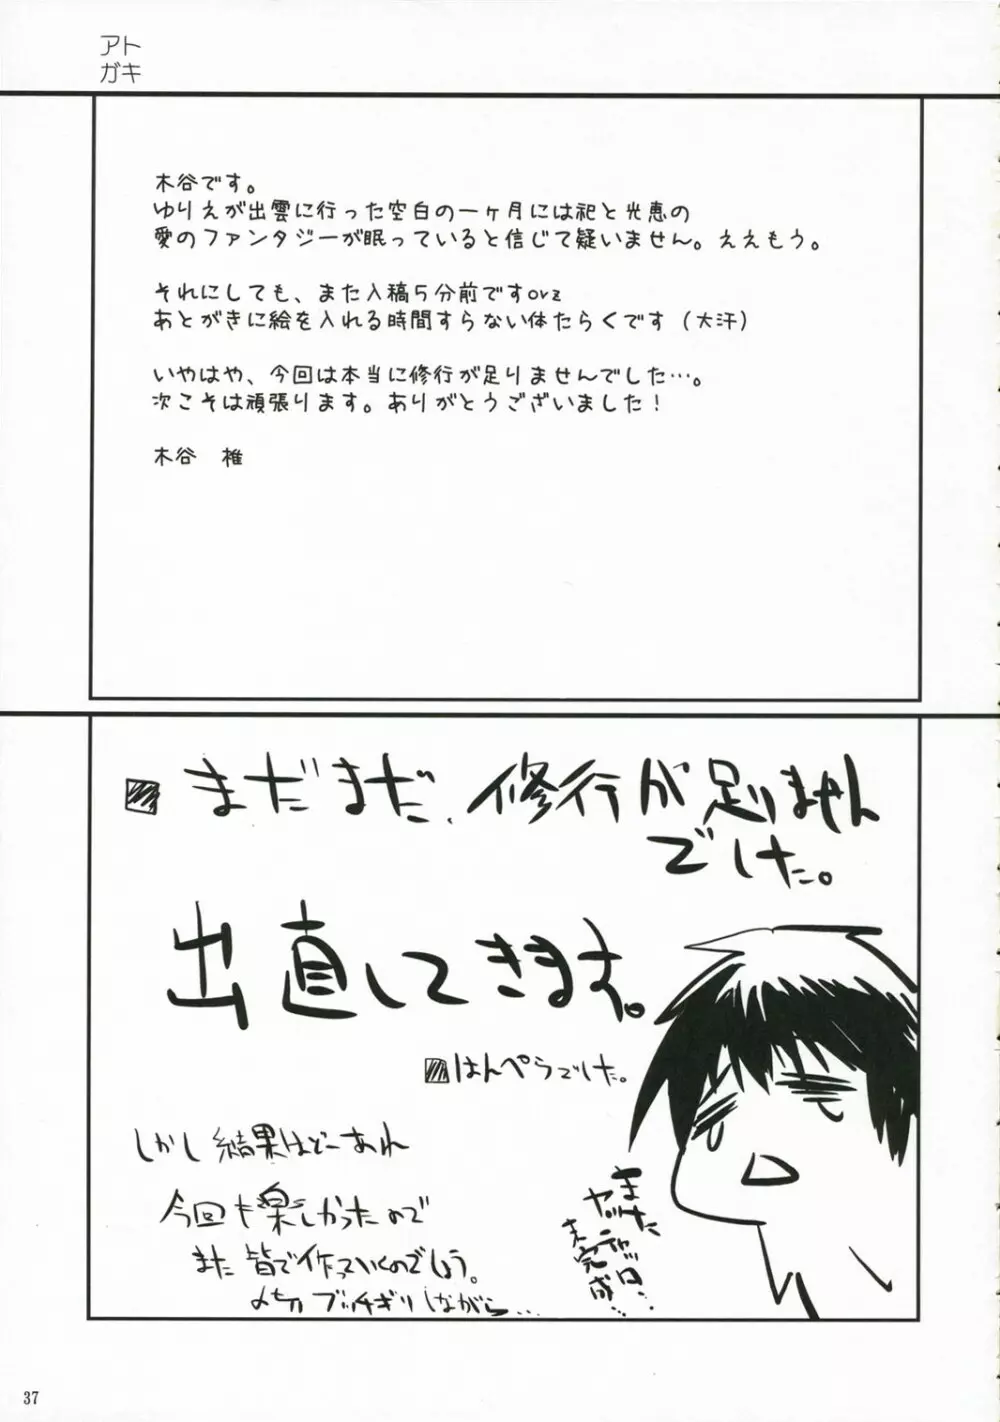 アト
ガキ
木谷です。
ゆりえが出雲に行った空白の一ヶ月には祀と光恵の
愛のファンタジーが眠っていると信じて疑いません。ええもう。
それにしても、また入稿5分前ですorz
あとがきに絵を入れる時間すらない体たらくです（大汗）
いやはや、今回は本当に修行が足りませんでした…。
次こそは頑張ります。ありがとうございました！
木谷　椎
まだまだ、修行が足りません
でした。
出直してきます。
はんぺらでした。
しかし結果はどーあれ
今回も楽しかったので
また皆で作っていくのでしょう。
〆切ブッチギリしながら…
また
ヤッ
チャッタロ…
未完成…
37